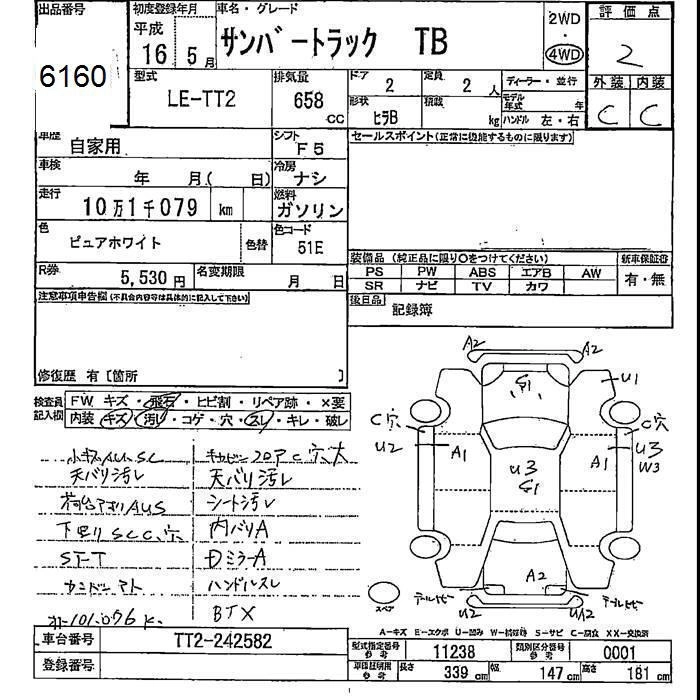 出品番号 初度登録年月 車名・グレード 2WD 評価点
6160 平成 16 5月 サンバートラック TB ・ 4WD 2
型式 排気量 ドア 2 定員 2人 ディーラー・並行 外装 内装
LE-TT2 658 CC 形状 ヒラB 積載 kg モデル年式 年 ハンドル 左・右 C C
車歴 自家用 シフト F5 セールスポイント(正常に機能するものに限ります)
車検 年 月( 日) 冷房 ナシ
走行 10万1千079 km 燃料 ガソリン
色 ピュアホワイト 色替 色コード 51E
装備品(純正品に限り○をつけてください) 新車保証書
PS PW ABS エアB AW 有・無
SR ナビ TV カワ
R券 5,530円 名変期限 月 日
後日品 記録簿
注意事項申告欄(不具合内容等は具体的に記入して下さい)
修復歴 有〔箇所 〕
検査員記入欄 FW キズ・飛石・ヒビ割・リペア跡・×要
内装 キズ・汚レ・コゲ・穴・スレ・キレ・破レ
A2 A2
G1 U1
C穴 C穴
U2 A1 U3 G1 A1 U3 W3
A2
U2 UA2
スペア
天バリ汚レ 天バリ汚レ
荷台アオリAUS シートヨゴレ
下回リSCC、穴 内バリA
ST-T DミラーA
ハンドルスレ
BTX
A-キズ E-エクボ U-凹み W-補修跡 S-サビ C-腐食 XX-交換済
車台番号 TT2-242582
登録番号
型式指定番号 参考 11238 類別区分番号 参考 0001
車検証明用 参考 長さ 339cm 幅 147cm 高さ 181cm